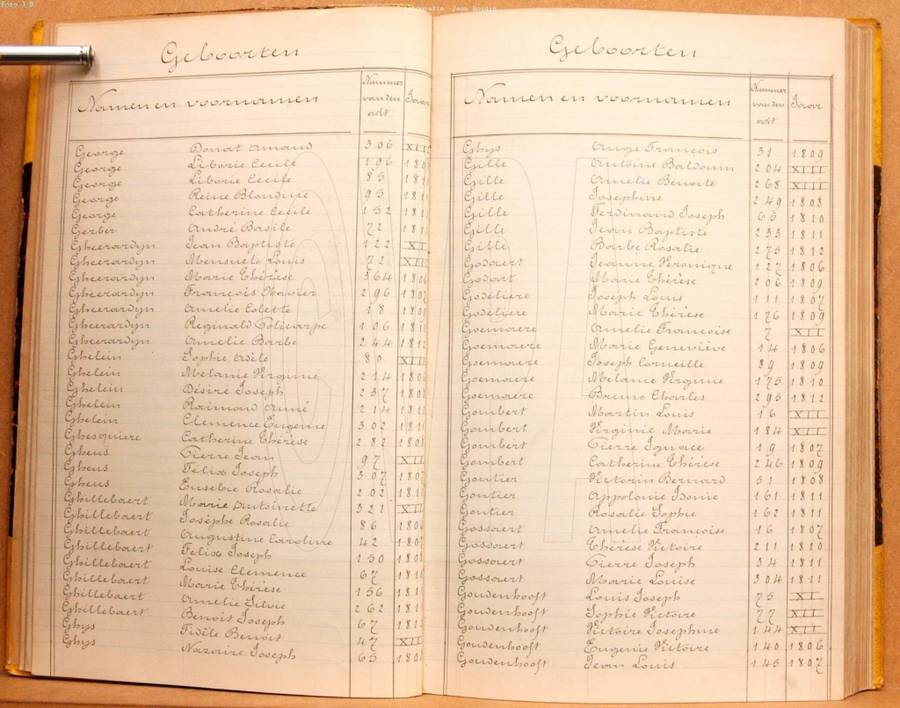 Geboorten
Namen en voornamen Nummer van den akt
George Donat Armand 306 XII
George Liborie Cecile 196
George Liborie Cecile 85
George Reine Blondine 95
George Catherine Cecile 152
Gerber André Basile 72
Gheerardyn Jean Baptiste 122 XI
Gheerardyn Louis 72 XII
Gheerardyn Marie Thérèse 364
Gheerardyn François Xavier 296
Gheerardyn Amelie Colette 18
Gheerardyn Reginald Policarpe 106
Gheerardyn Amelie Barbe 244
Ghelein Sophie Adèle 80 XII
Ghelein Melanie Virginie 214
Ghelein Désiré Joseph 257
Ghelein Raimond Aimé 214
Ghelein Clemence Eugenie 302
Ghesquiere Catherine Thérèse 282
Gheus Pierre Jean 97 XII
Gheus Félix Joseph 307
Gheus Eusebie Rosalie 202
Ghillebaert Marie Antoinette 321 XII
Ghillebaert Josèphe Rosalie 86
Ghillebaert Augustine Caroline 42
Ghillebaert Felix Joseph 130
Ghillebaert Louise Clemence 67
Ghillebaert Marie Thérèse 156
Ghillebaert Amelie Silvie 262
Ghillebaert Benoit Joseph 67
Ghys Fidèle Benoit 47 XII
Ghys Nazaire Joseph 63
Geboorten
Namen en voornamen Nummer van den akt Jaar
Ghys Ange François 31 1809
Gille Antoine Baldouin 204 XIII
Gille Amelie Benoite 268 XIII
Gille Josephine 249 1808
Gille Ferdinand Joseph 63 1810
Gille Jean Baptiste 233 1811
Gille Barbe Rosalie 275 1812
Godaert Jeanne Véronique 127 1806
Godart Marie Thérèse 206 1809
Godeliere Joseph Louis 111 1807
Godeliere Marie Thérèse 176 1809
Goemaere Amelie Françoise 7 XII
Goemaere Marie Geneviève 14 1806
Goemaere Joseph Corneille 89 1809
Goemaere Melanie Virginie 175 1810
Goemaere Bruno Charles 295 1812
Gombert Martin Louis 16 XII
Gombert Virginie Marie 184 XII
Gombert Pierre Ignace 19 1807
Gombert Catherine Thérèse 246 1809
Gontier Victorin Bernard 51 1808
Gontier Appolonie 161 1811
Gontier Rosalie Sophie 162 1811
Gossaert Amelie Françoise 16 1807
Gossaert Thérèse Victoire 211 1810
Gossaert Pierre Joseph 34 1811
Gossaert Marie Louise 304 1811
Goudenhooft Louis Joseph 75 XI
Goudenhooft Sophie Victoire 77 XII
Goudenhooft Victoire Josephine 144 XII
Goudenhooft Eugenie Victoire 140 1806
Goudenhooft Jean Louis 145 1807